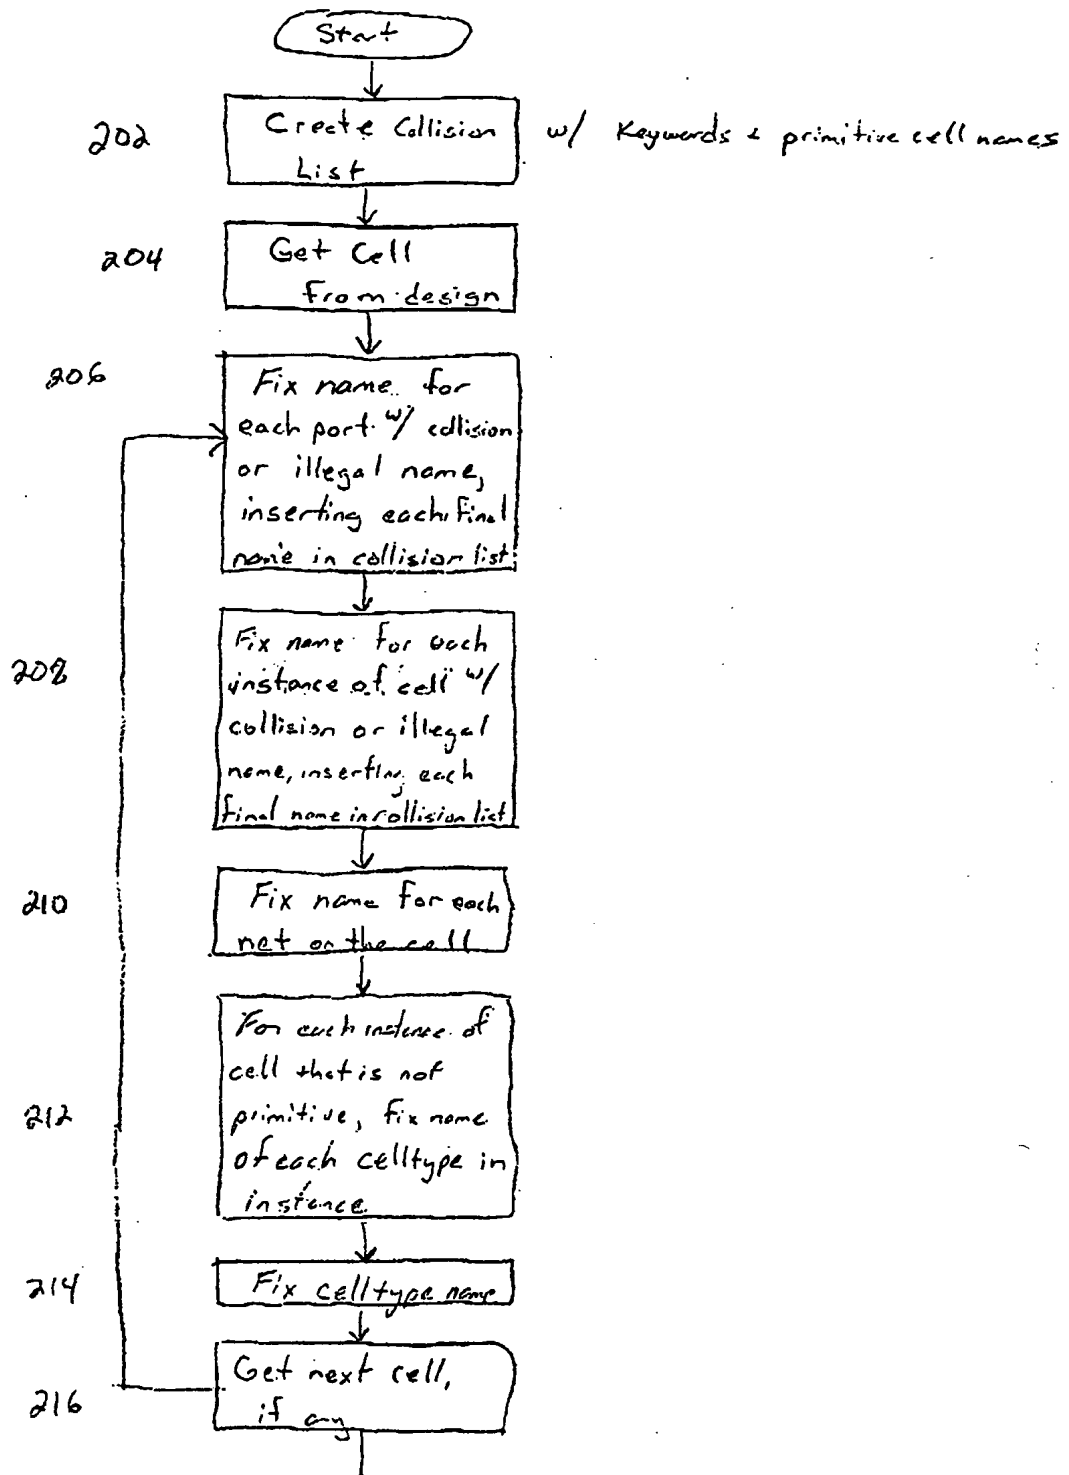 Start
202
Create Collision
List
w/ Keywords & primitive cell names
204
Get Cell
from design
206
Fix name for
each port w/ collision
or illegal name,
inserting each final
name in collision list
208
Fix name for each
instance of cell w/
collision or illegal
name, inserting each
final name in collision list
210
Fix name for each
net on the cell
212
For each instance of
cell that is not
primitive, fix name
of each celltype in
instance
214
Fix celltype name
216
Get next cell,
if any